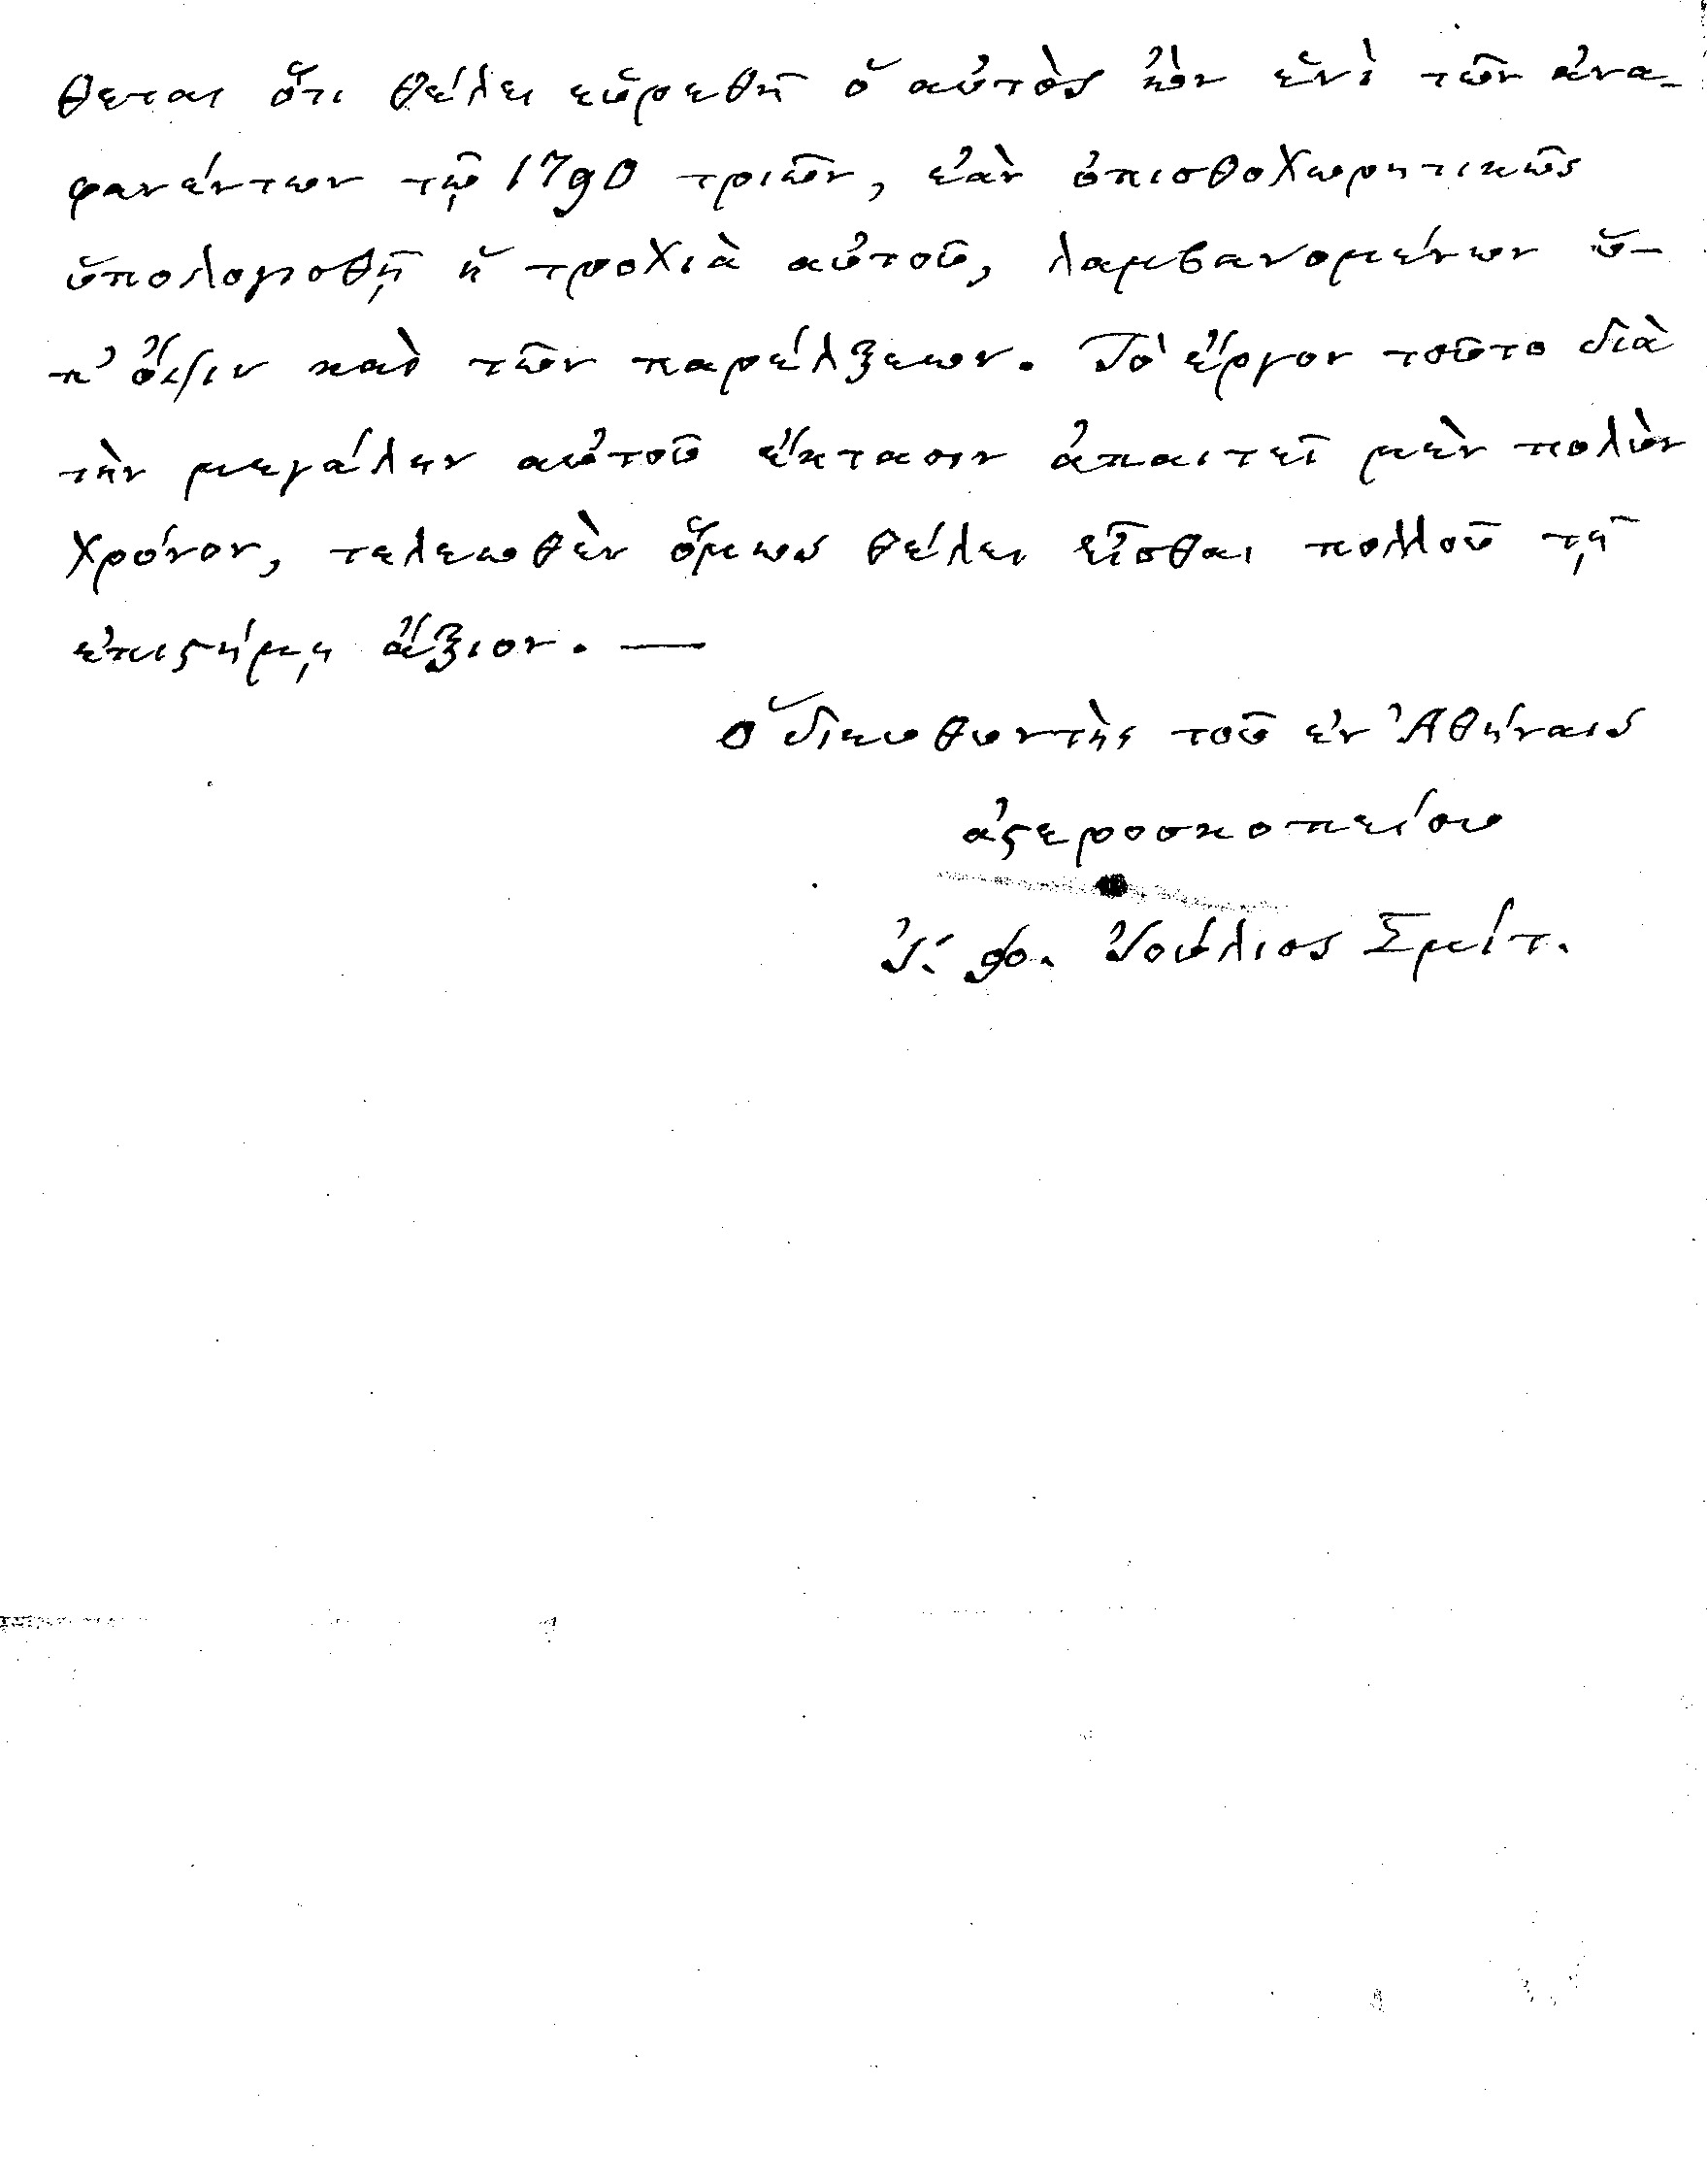 θεται ὅτι θέλει εὑρεθῆ ὁ αὐτὸς ὢν ἑνὶ τῶν ἀνα-
φανέντων τῷ 1790 τριῶν, ἐὰν ὀπισθοχωρητικῶς
ὑπολογισθῇ ἡ τροχιὰ αὐτοῦ, λαμβανομένων ὑ-
π' ὄψιν καὶ τῶν παρέλξεων. Τὸ ἔργον τοῦτο διὰ
τὴν μεγάλην αὐτοῦ ἔκτασιν ἀπαιτεῖ μὲν πολὺν
χρόνον, τελειωθὲν ὅμως θέλει εἶσθαι πολλοῦ τῇ
ἐπιςήμῃ ἄξιον. —
Ὁ διευθυντὴς τοῦ ἐν Ἀθήναις
ἀςεροσκοπείου
Ἰ. φ. Ἰούλιος Σμίτ.